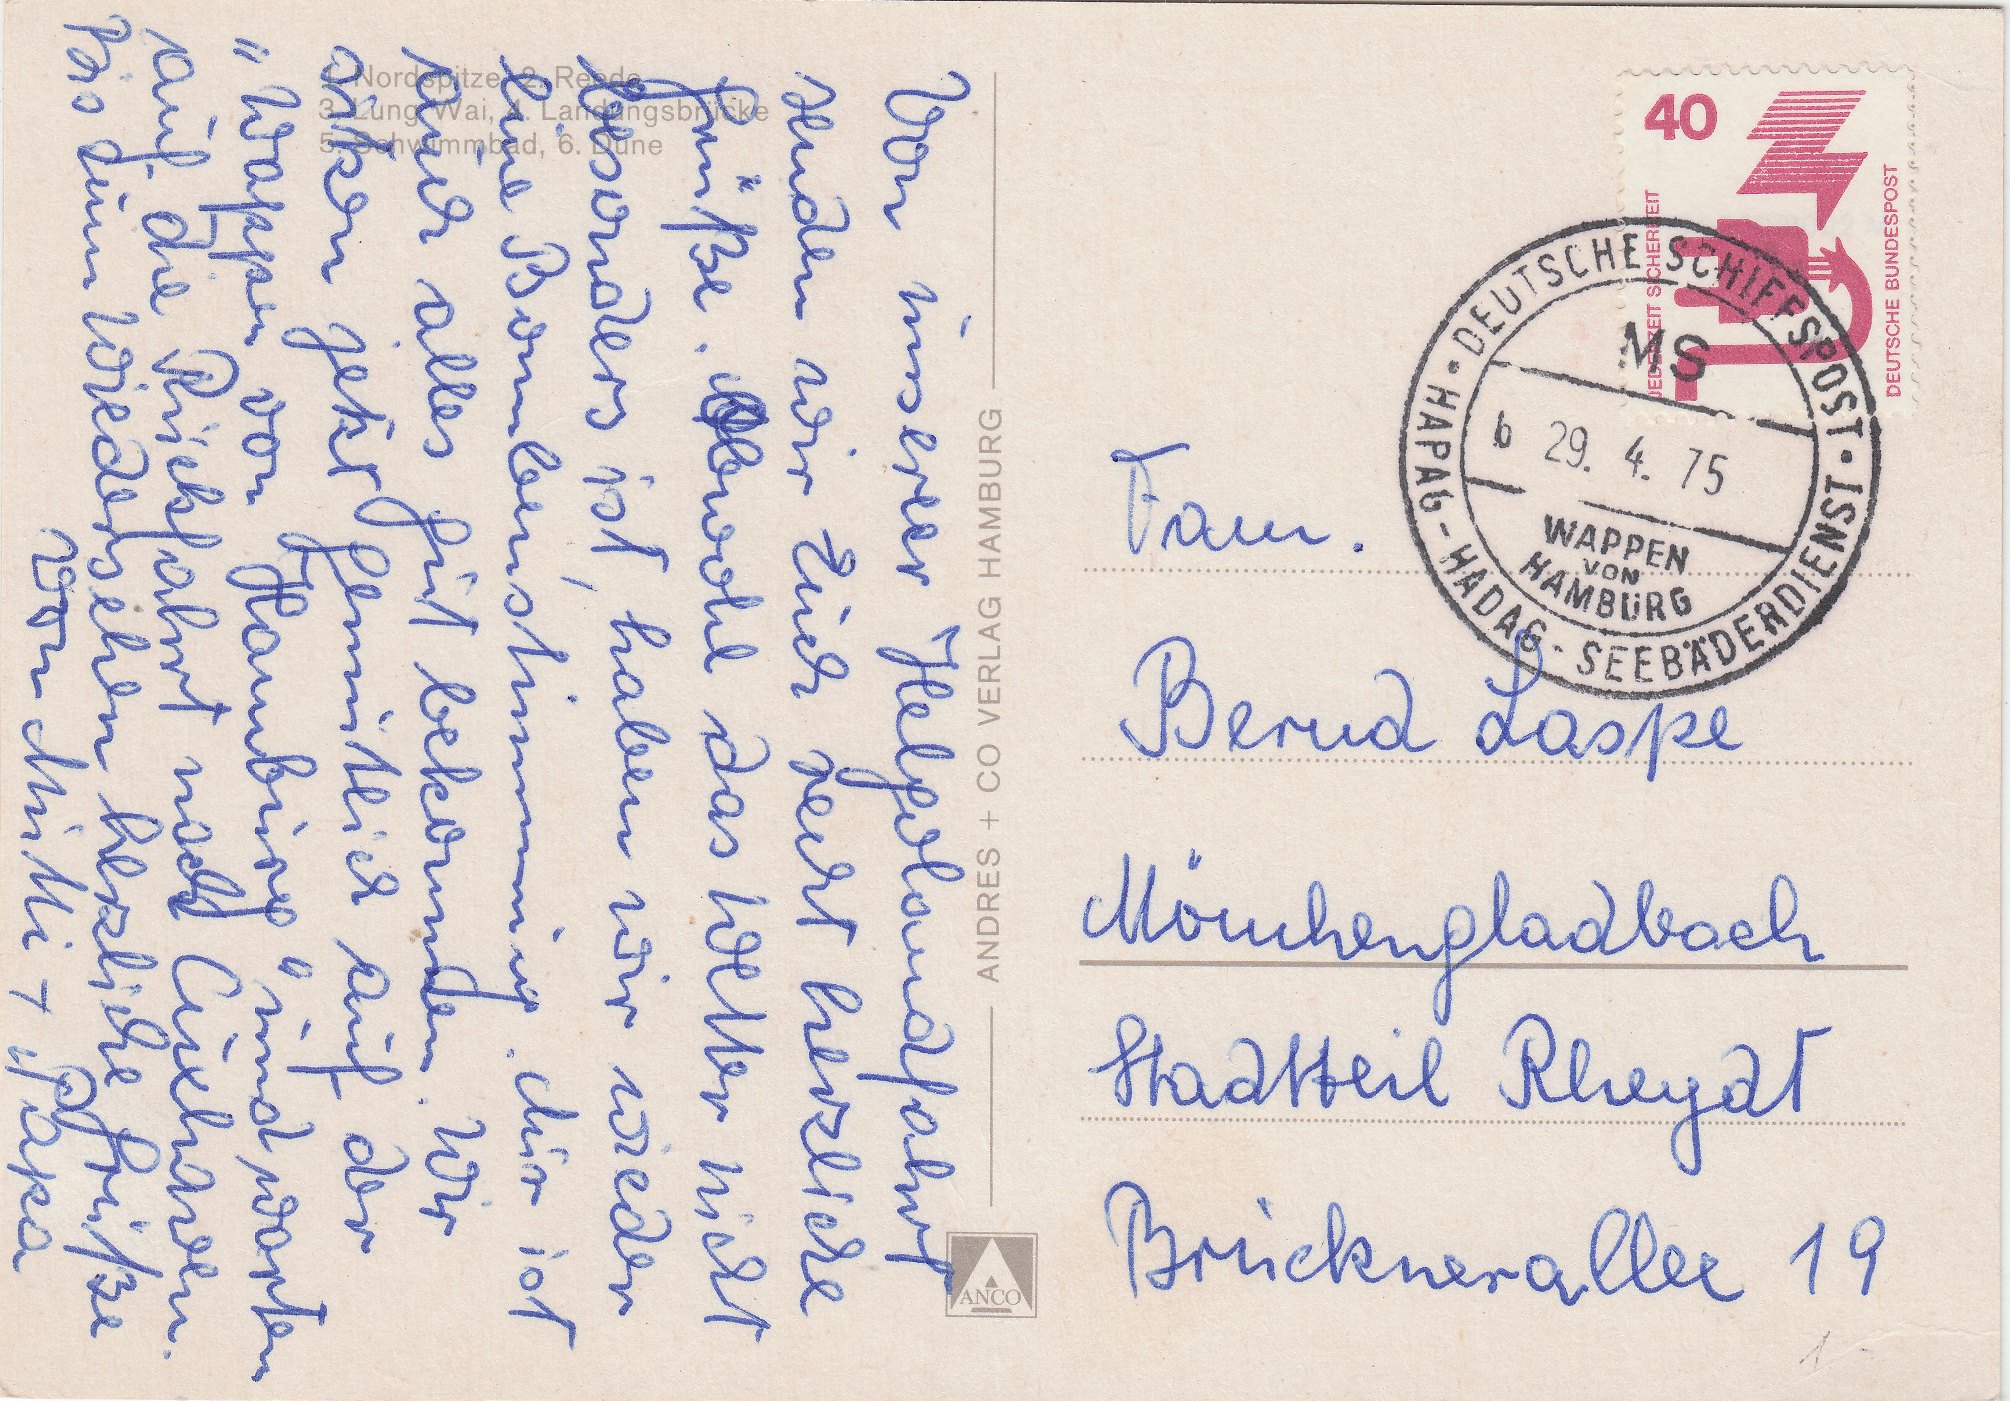 1. Nordspitze, 2. Reede
3. Lung Wai, 4. Landungsbrücke
5. Schwimmbad, 6. Düne
Von unserer Helgolandfahrt
senden wir Euch recht herzliche
Grüße. Obwohl das Wetter nicht
besonders ist, haben wir wieder
eine Bombenstimmung. Mir ist
auch alles gut bekommen. Wir
sitzen jetzt gemütlich auf der
"Wappen von Hamburg" und warten
auf die Rückfahrt nach Cuxhaven.
Bis zum Wiedersehen herzliche Grüße
von Mutti + Papa
ANDRES + CO VERLAG HAMBURG
ANCO
40
JEDERZEIT SICHERHEIT
DEUTSCHE BUNDESPOST
DEUTSCHE SCHIFFSPOST
MS
b 29. 4. 75
WAPPEN
VON
HAMBURG
HAPAG-HADAG-SEEBÄDERDIENST
Fam.
Bernd Laspe
Mönchengladbach
Stadtteil Rheydt
Brückneralle 19
1